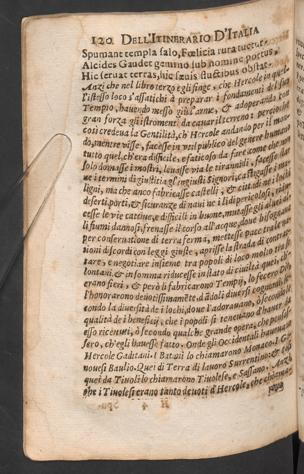 120 DELL'ITINERARIO D'ITALIA
Spumant templa salo, Fœlicia rura tuetur
Alcides Gaudet gemino sub nomine portus,
Hic servat terras, hic sævis fluctibus obstat.
Anzi che nel libro terzo egli finge, che Hercole in quel-
l'istesso loco s'affatichi à preparar i fondamenti del suo
Tempio, havendo messo giù l'arme, & adoperando con
gran forza gli istromenti da cavar il terreno: perciòche
così credeva la Gentilità, ch'Hercole andando per il mon-
do, mentre visse, facesse in util publico del genere humano
tutto quel, ch'era difficile, e faticoso da fare come che non
solo domasse i mostri, levasse via le tirannidi, facesse
ne i termini di giustitia gl'ingiusti Signori, castigasse i ma-
ligni, ma che anco fabricasse castelli, & città ne i luochi
deserti, porti, & sicuranze di navi ne i lidi pericolosi,
cesse le vie cattive, e difficili in buone, mutasse gli alvei
li fiumi dannosi, frenasse il corso all'acque dove bisognava
per conservatione di terra ferma, mettesse pace tra le na-
tioni discordi con leggi giuste, aprisse la strada di contrat-
tare, e negotiare insieme tra popoli di loco molto frà se
lontani, & in somma riducesse in stato di civiltà quei ch'
erano fieri, & però li fabricarono Tempij, lo fecero Dio,
l'honorarono devotissimamente dandoli diversi cognomi se-
condo la diversità de i lochi, dove l'adoravano, ò secondo la
qualità de i beneficij, che i popoli si tenevano d'haver da
esso ricevuti, ò secondo qualche grande opera, che
sero, ch'egli havesse fatto. Onde gli Occidentali
Hercole Gaditani. I Batavi lo chiamarono Monaco. I Ge-
novesi Baulio. Quei di Terra di lavoro Surrentino: &
quei da Tivoli lo chiamarono Tivolese, e Sassano. Anzi
che i Tivolesi erano tanto devoti d'Hercole, che
H 4